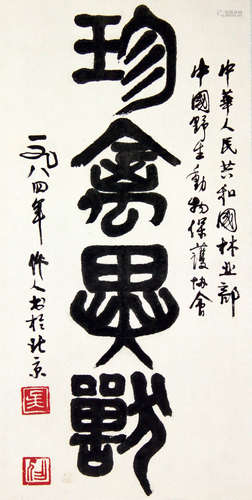 中华人民共和國林业部
中國野生動物保護协會
珍禽異獸
一九八四年作人书於北京